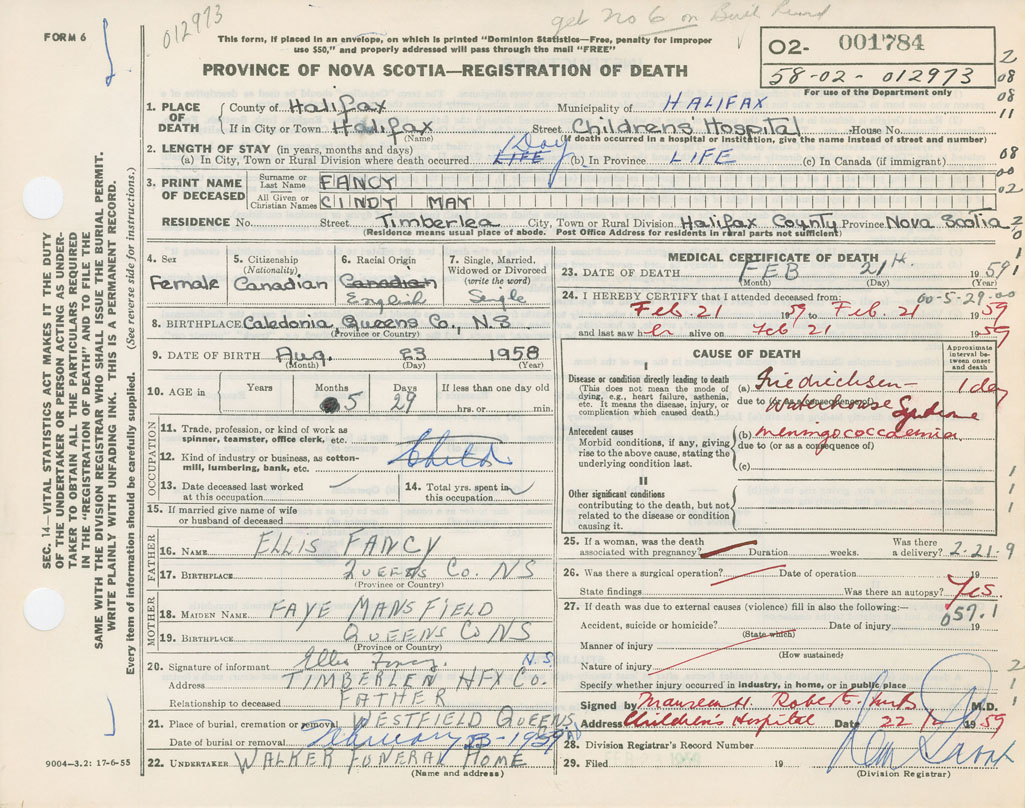 012973
get No 6 on Birth Record
FORM 6
This form, if placed in an envelope, on which is printed "Dominion Statistics—Free, penalty for improper
use $50," and properly addressed will pass through the mail "FREE"
PROVINCE OF NOVA SCOTIA—REGISTRATION OF DEATH
O2- 001784
58-02-012973
For use of the Department only
2
08
08
11
1. PLACE OF DEATH
County of Halifax Municipality of HALIFAX
If in City or Town Halifax Street Childrens' Hospital House No.
(Name) (If death occurred in a hospital or institution, give the name instead of street and number)
2. LENGTH OF STAY (in years, months and days) Day
(a) In City, Town or Rural Division where death occurred LIFE (b) In Province LIFE (c) In Canada (if immigrant)
08
00
02
3. PRINT NAME OF DECEASED
Surname or Last Name FANCY
All Given or Christian Names CINDY MAY
RESIDENCE No. Street Timberlea City, Town or Rural Division Halifax County Province Nova Scotia
(Residence means usual place of abode. Post Office Address for residents in rural parts not sufficient)
2
0
4. Sex
Female
5. Citizenship
(Nationality)
Canadian
6. Racial Origin
Canadian
English
7. Single, Married, Widowed or Divorced
(write the word)
Single
8. BIRTHPLACE Caledonia, Queens Co., N.S.
(Province or Country)
9. DATE OF BIRTH Aug. 23 1958
(Month) (Day) (Year)
10. AGE in Years Months Days If less than one day old
5 29 hrs. or min.
OCCUPATION
11. Trade, profession, or kind of work as
spinner, teamster, office clerk, etc.
12. Kind of industry or business, as cotton-
mill, lumbering, bank, etc.
Child
13. Date deceased last worked
at this occupation
14. Total yrs. spent in
this occupation
15. If married give name of wife
or husband of deceased
FATHER
16. NAME ELLIS FANCY
17. BIRTHPLACE QUEENS Co. NS
(Province or Country)
MOTHER
18. MAIDEN NAME FAYE MANSFIELD
19. BIRTHPLACE QUEENS Co NS
(Province or Country)
20. Signature of informant Ellis Fancy N.S.
Address TIMBERLEA HFX Co.
Relationship to deceased FATHER
21. Place of burial, cremation or removal, WESTFIELD QUEENS
Date of burial or removal February 23-1959
22. UNDERTAKER WALKER FUNERAL HOME
(Name and address)
MEDICAL CERTIFICATE OF DEATH
23. DATE OF DEATH FEB 21st. 1959
(Month) (Day) (Year)
1
1
24. I HEREBY CERTIFY that I attended deceased from: 00-5-29-00
Feb. 21 1959 to Feb. 21 1959
and last saw her alive on Feb 21 1959
CAUSE OF DEATH
Approximate interval between onset and death
I
Disease or condition directly leading to death
(This does not mean the mode of
dying, e.g., heart failure, asthenia,
etc. It means the disease, injury, or
complication which caused death.)
(a) Friedrichsen- 1 day
due to (or as a consequence of)
Waterhouse Syndrome
Antecedent causes
Morbid conditions, if any, giving
rise to the above cause, stating the
underlying condition last.
(b) meningococcaemia
due to (or as a consequence of)
(c)
II
Other significant conditions
contributing to the death, but not
related to the disease or condition
causing it.
1
1
1
25. If a woman, was the death
associated with pregnancy? Duration weeks. Was there
a delivery? 2-21-9
26. Was there a surgical operation? Date of operation 19
State findings Was there an autopsy? Yes.
27. If death was due to external causes (violence) fill in also the following:— 057.1
Accident, suicide or homicide? Date of injury 19
(State which)
Manner of injury
(How sustained)
Nature of injury
2
1
Specify whether injury occurred in industry, in home, or in public place
Signed by Maureen H. Roberts M.D.
Address Children's Hospital Date 22 1959
28. Division Registrar's Record Number
29. Filed 19
(Division Registrar)
SEC. 14—VITAL STATISTICS ACT MAKES IT THE DUTY
OF THE UNDERTAKER OR PERSON ACTING AS UNDER-
TAKER TO OBTAIN ALL THE PARTICULARS REQUIRED
IN THE "REGISTRATION OF DEATH" AND TO FILE THE
SAME WITH THE DIVISION REGISTRAR WHO SHALL ISSUE THE BURIAL PERMIT.
WRITE PLAINLY WITH UNFADING INK. THIS IS A PERMANENT RECORD.
Every item of information should be carefully supplied. (See reverse side for instructions.)
9004—3.2: 17-6-55